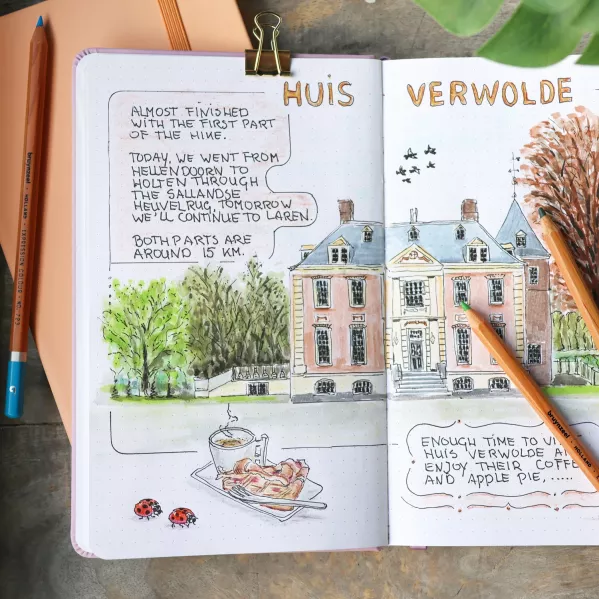 HUIS VERWOLDE
ALMOST FINISHED
WITH THE FIRST PART
OF THE HIKE.
TODAY, WE WENT FROM
HELLENDOORN TO
HOLTEN THROUGH
THE SALLANDSE
HEUVELRUG, TOMORROW
WE'LL CONTINUE TO LAREN.
BOTH PARTS ARE
AROUND 15 KM.
ENOUGH TIME TO
HUIS VERWOLDE
ENJOY THEIR
AND APPLE PIE, .....
bruynzeel HOLLAND
bruynzeel HOLLAND